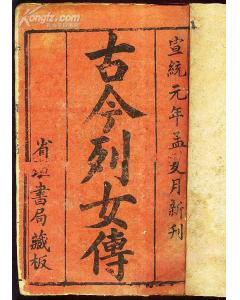 宣統元年孟夏月新刊
古今列女傳
書局藏板
Kongfz.com